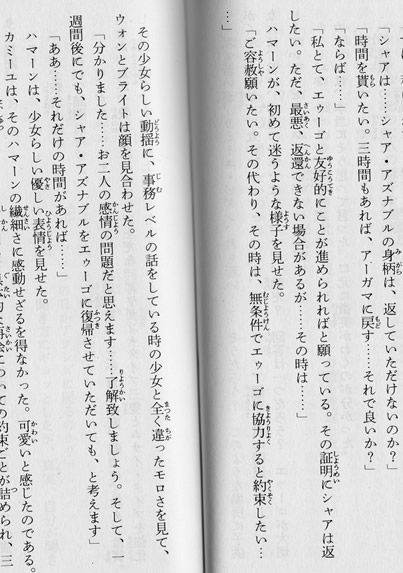 「シャアは……シャア・アズナブルの身柄は、返していただけないのか?」
「時間を貰いたい。三時間もあれば、アーガマに戻す……それで良いか?」
「ならば……」
「私とて、エゥーゴと友好的にことが進められればと願っている。その証明にシャアは返
したい。ただ、最悪、返還できない場合があるが……その時は……」
ハマーンが、初めて迷うような様子を見せた。
「ご容赦願いたい。その代わり、その時は、無条件でエゥーゴに協力すると約束したい…
…」
その少女らしい動揺に、事務レベルの話をしている時の少女と全く違ったモロさを見て、
ウォンとブライトは顔を見合わせた。
「分かりました……お二人の感情の問題だと思えます……了解致しましょう。そして、一
週間後にでも、シャア・アズナブルをエゥーゴに復帰させていただいても、と考えます」
「ああ……それだけの時間があれば……」
ハマーンは、少女らしい優しい表情を見せた。
カミーユは、そのハマーンの繊細さに感動せざるを得なかった。可愛いと感じたのである。
再会についての約束ごとが詰められ、三